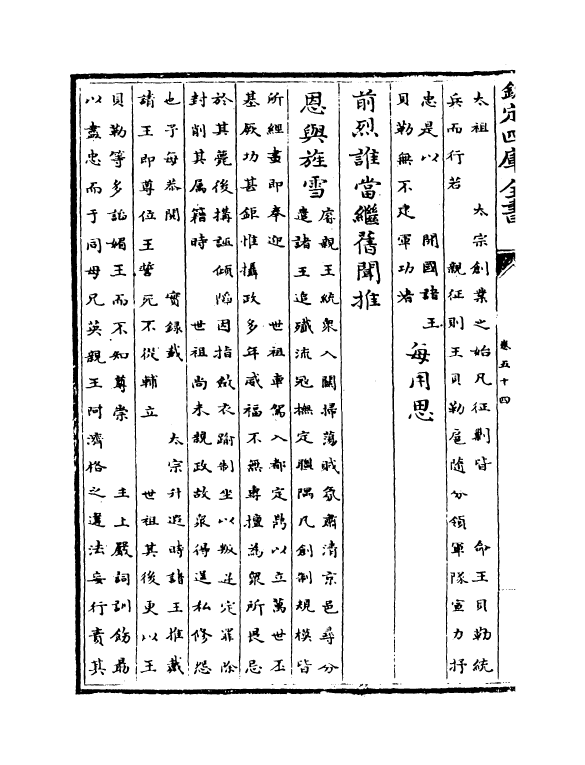 欽定四庫全書
卷五十四
太祖　太宗創業之始凡征剿皆　命王貝勒統
兵而行若　親征則王貝勒扈隨分領軍隊宣力抒
忠是以　開國諸王
貝勒無不建軍功者
每用思
前烈誰當繼舊聞推
恩與旌雪
睿親王統衆入關掃蕩賊氛肅清京邑尋分
遣諸王追殲流寇撫定疆隅凡創制規模皆
所經畫即奉迎　世祖車駕入都定鼎以立萬世丕
基厥功甚鉅惟攝政多年威福不無專擅為衆所畏忌
於其薨後搆誣傾陷因指斂衣踰制坐以叛逆定罪除
封削其屬籍時　世祖尚未親政故衆得逞私修怨
也予每恭閱　實錄載　太宗升遐時諸王推戴
請王即尊位王誓死不從輔立　世祖其後更以王
貝勒等多諂媚王而不知尊崇　主上嚴詞訓飭勗
以盡忠而于同母兄英親王阿濟格之違法妄行責其